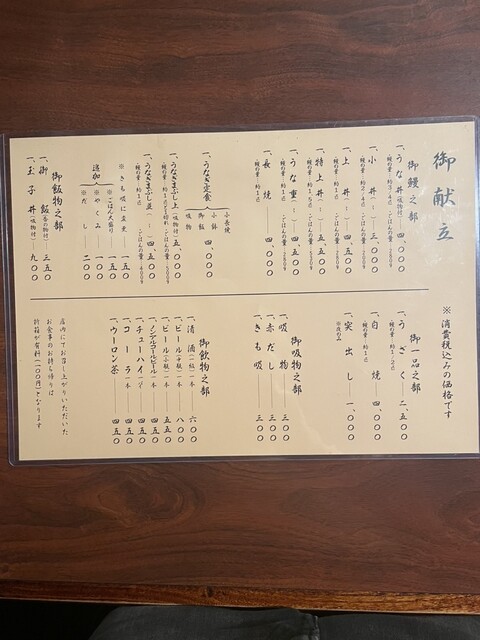 御献立
※消費税込みの価格です
御鰻之部
一、うな丼(吸物付) 四、〇〇〇
一、小丼(〃) 三、〇〇〇
一、上丼(〃) 四、五〇〇
一、特上丼(〃) 五、五〇〇
一、うな重(〃) 五、〇〇〇
一、長焼 四、〇〇〇
一、うなぎ定食 四、〇〇〇
小長焼
小鉢
御飯
吸物
一、うなぎまぶし上(吸物付) 五、〇〇〇
一、うなぎまぶし並(〃) 四、五〇〇
※きも吸に変更 一五〇
追加
※ごはん大盛り 一五〇
※やくみ 一〇〇
※だし 二〇〇
御飯物之部
一、御飯(香の物付) 三五〇
一、玉子丼(吸物付) 九〇〇
御一品之部
一、うざく 二、五〇〇
一、白焼 四、〇〇〇
一、突出し 一、〇〇〇
※夜のみ
御吸物之部
一、吸物 三〇〇
一、赤だし 三〇〇
一、きも吸 三〇〇
御飲物之部
一、清酒(一合)一本 六〇〇
一、ビール(中瓶)一本 八〇〇
一、ビール(小瓶)一本 五五〇
一、ノンアルコールビール 四五〇
一、チューハイ 四五〇
一、コーラ一本 四五〇
一、ウーロン茶 四五〇
店内にてお召し上がりいただいた
お食事のお持ち帰りは
折箱が有料(一〇〇円)となります